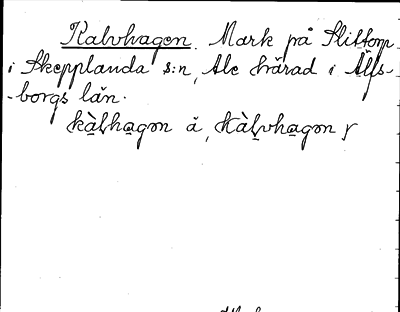 Kalvhagen. Mark på Slittorp
i Skepplanda s:n, Ale härad i Älfs-
-borgs län.
kàlhagən ä, kàlvhagən γ